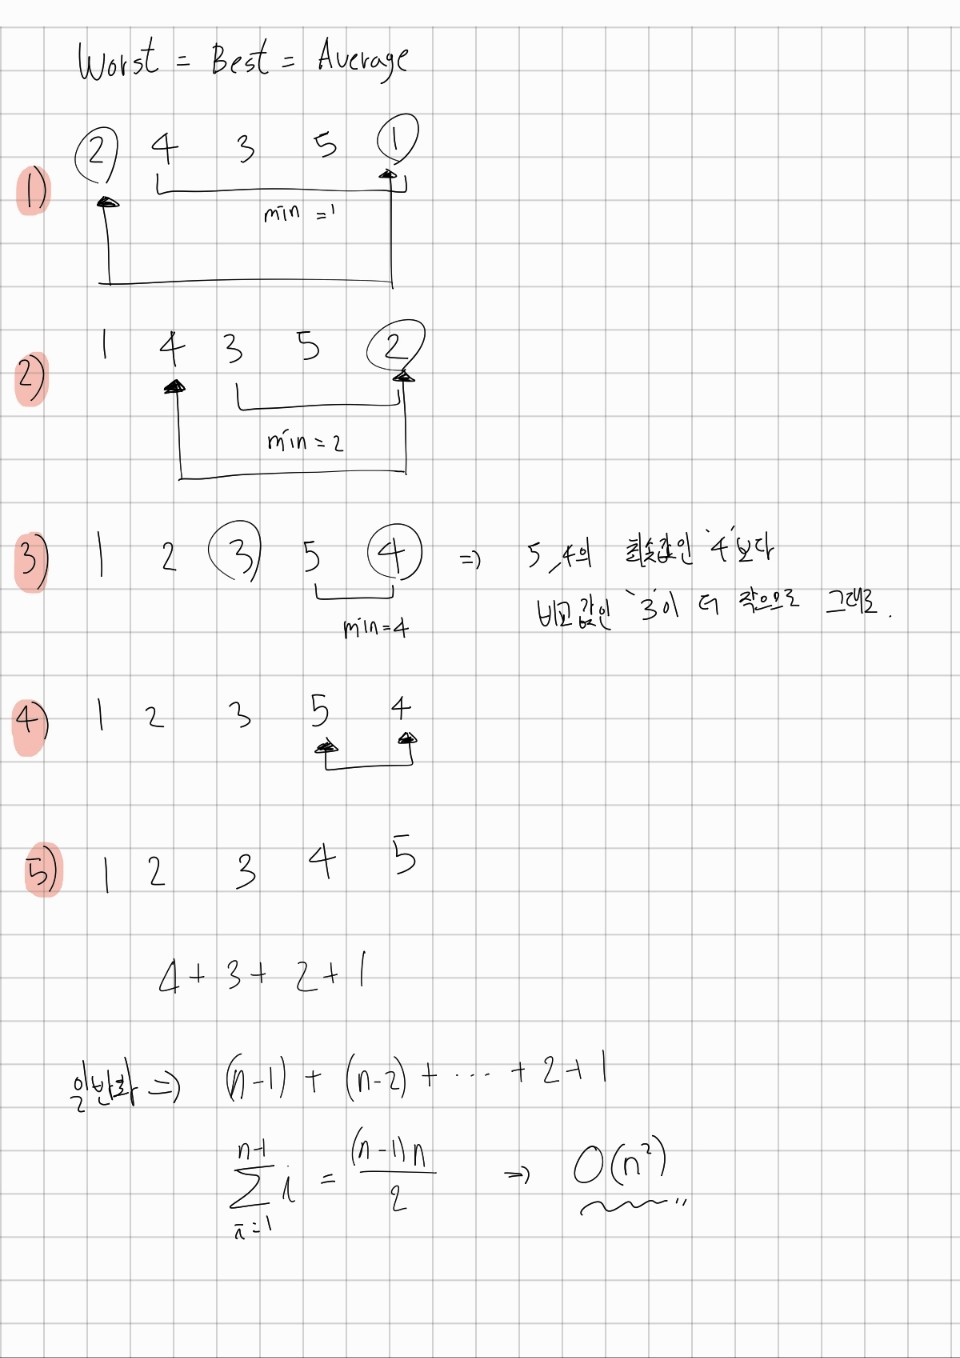 Worst = Best = Average
1) 2 4 3 5 1
min = 1
2) 1 4 3 5 2
min = 2
3) 1 2 3 5 4 => 5, 4의 최솟값인 '4'보다
min=4 비교값인 '3'이 더 작으므로 그대로.
4) 1 2 3 5 4
5) 1 2 3 4 5
4 + 3 + 2 + 1
일반화 => (n-1) + (n-2) + ... + 2 + 1
n-1
∑ i = (n-1)n / 2 => O(n²)
i=1